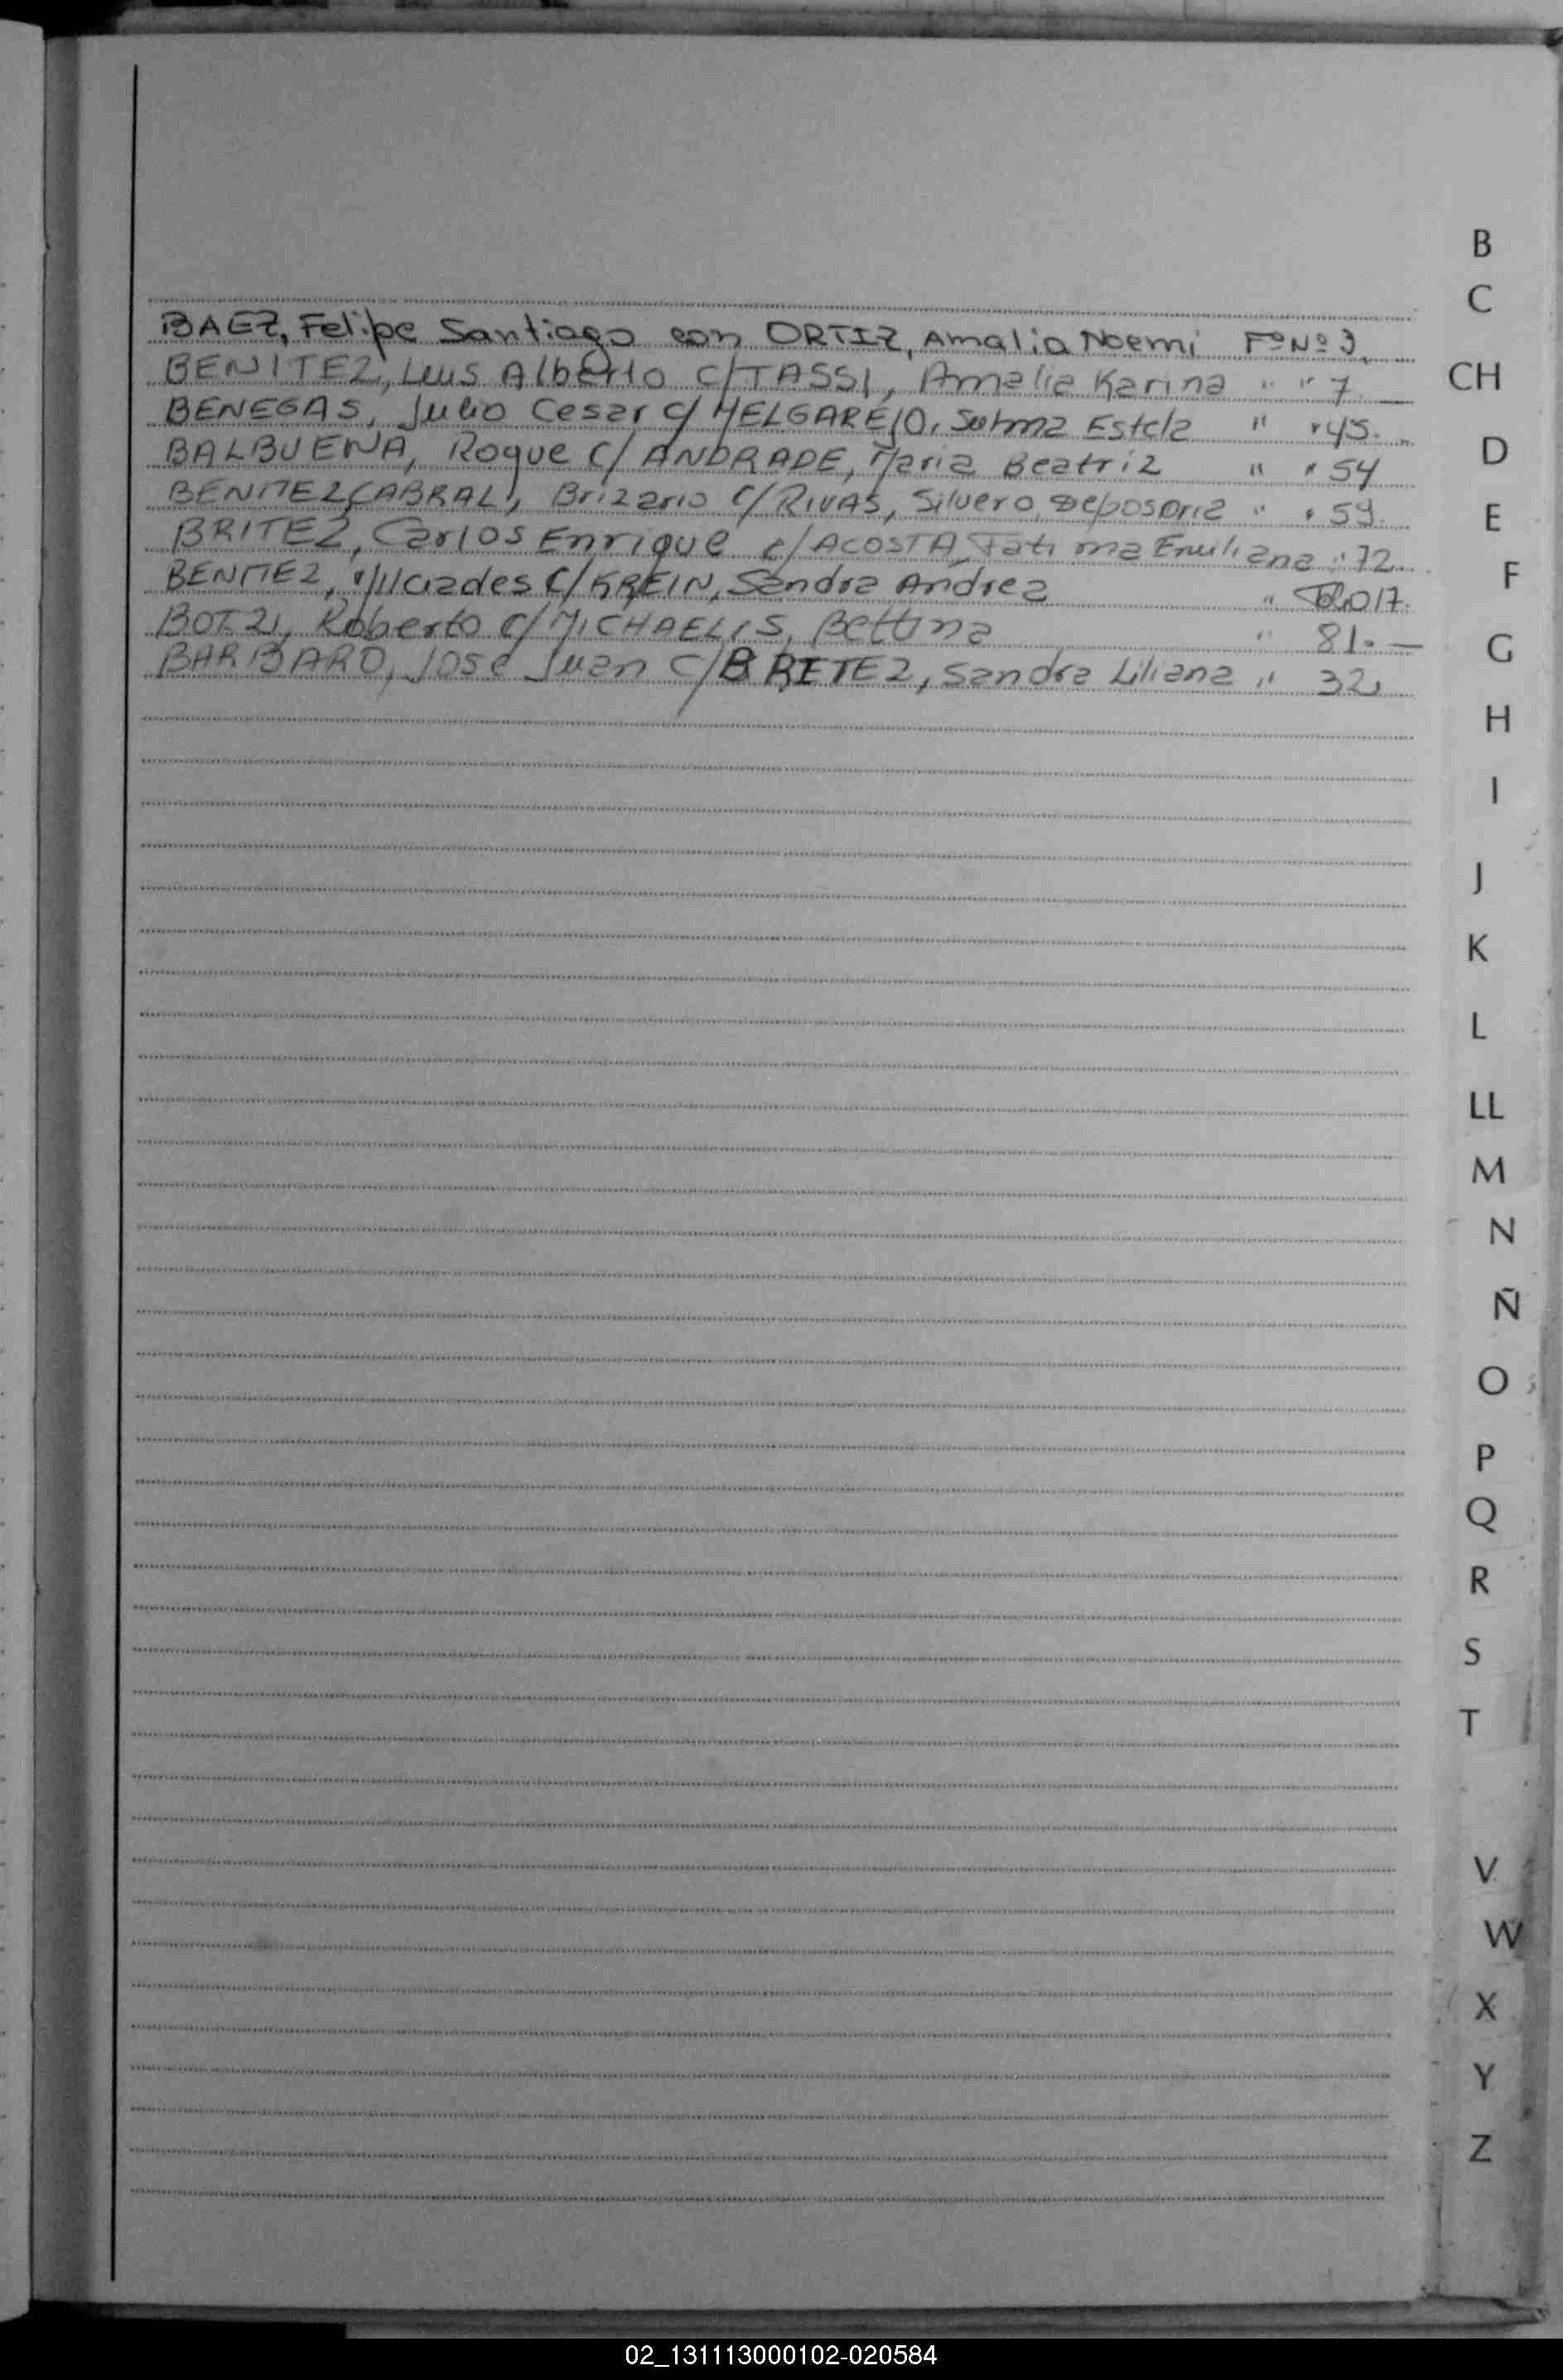 BAEZ, Felipe Santiago con ORTIZ, Amalia Noemi Fº Nº 3.
BENITEZ, Luis Alberto C/TASSI, Amalia Karina " " 7.
BENEGAS, Julio Cesar c/ MELGAREJO, Selma Estela " " 45.
BALBUENA, Roque C/ ANDRADE, Maria Beatriz " " 54
BENITEZ CABRAL, Brizario C/RIVAS, Silvero Deposoria " " 59.
BRITEZ, Carlos Enrique c/ACOSTA, Fatima Emiliana " 72.
BENITEZ, C/KREIN, Sandra Andrea " 17.
Roberto c/ MICHAELIS, Bettina " 81.
BARBARO, José Juan C/BRITEZ, Sandra Liliana " 32,
B
C
CH
D
E
F
G
H
I
J
K
L
LL
M
N
Ñ
O
P
Q
R
S
T
V
W
X
Y
Z
02_131113000102-020584